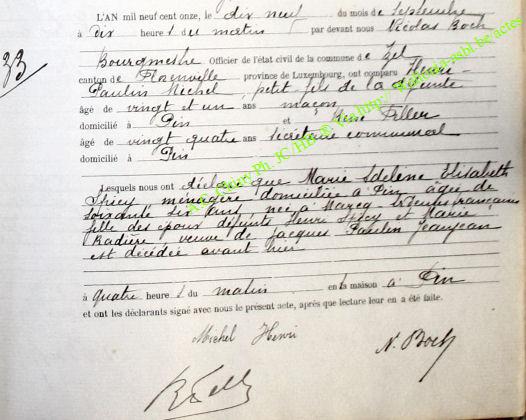 33
L'AN mil neuf cent onze, le dix neuf du mois de septembre
à dix heures du matin par devant nous Nicolas Boch
Bourgmestre Officier de l'état civil de la commune de Izel
canton de Florenville, province de Luxembourg, ont comparu Henri-
Paulin Michel, petit fils de la défunte
âgé de vingt et un ans maçon
domicilié à Pin et René Feller
âgé de vingt quatre ans secrétaire communal
domicilié à Pin
Lesquels nous ont déclaré que Marie Adeline Elisabeth
ménagère domiciliée à Pin, âgée de
soixante six ans, née à
fille des époux défunts Henri et Marie
veuve de Jacques Paulin Jeanjean
est décédée avant hier
à quatre heures du matin en la maison à Pin
et ont les déclarants signé avec nous le présent acte, après que lecture leur en a été faite.
Michel Henri
N. Boch